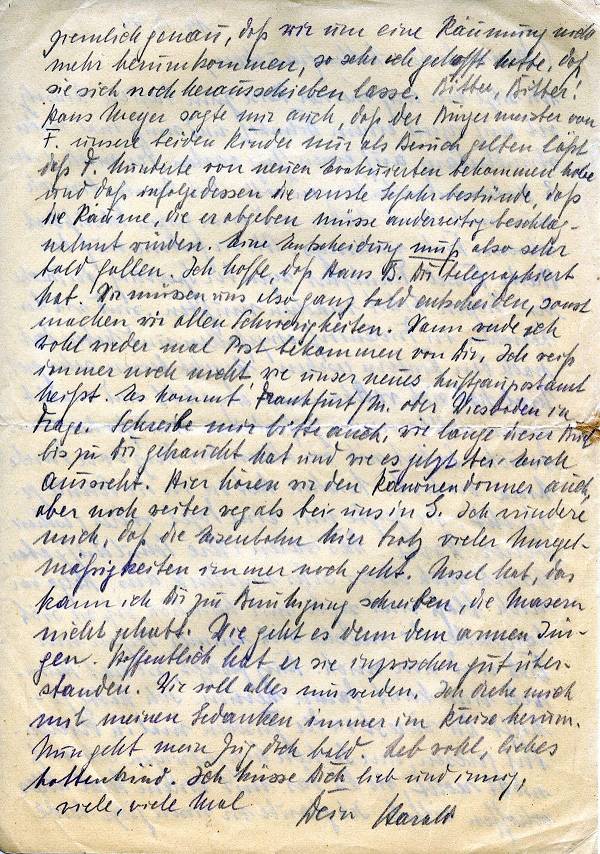 ziemlich genau, daß wir um eine Räumung nicht
mehr herumkommen, so sehr ich gehofft hatte, daß
sie sich noch herausschieben lasse. Bitter, Bitter!
Hans Meyer sagte mir auch, daß der Bürgermeister von
F. unsere beiden Kinder nur als Besuch gelten läßt
daß F. Hunderte von neuen Evakuierten bekommen habe
und daß infolgedessen die ernste Gefahr bestünde, daß
die Räume, die er abgeben müsse anderweitig beschlag-
nahmt würden. Eine Entscheidung muß also sehr
bald fallen. Ich hoffe, daß Hans B. Dir telegraphiert
hat. Wir müssen uns also ganz bald entscheiden, sonst
machen wir allen Schwierigkeiten. Wann werde ich
wohl wieder mal Post bekommen von Dir. Ich weiß
immer noch nicht, wie unser neues Luftgaupostamt
heißt. Es kommt Frankfurt/M. oder Wiesbaden in
Frage. Schreibe mir bitte auch, wie lange dieser Brief
bis zu Dir gebraucht hat und wie es jetzt bei Euch
aussieht. Hier hören wir den Kanonendonner auch,
aber noch weiter weg als bei uns in S. Ich wundere
mich, daß die Eisenbahn hier trotz vieler Unregel-
mäßigkeiten immer noch geht. Ursel hat, das
kann ich Dir zu Beruhigung schreiben, die Masern
nicht gehabt. Wie geht es denn dem armen Jun-
gen. Hoffentlich hat er sie inzwischen gut über-
standen. Wie soll alles nur werden. Ich drehe mich
mit meinen Gedanken immer im Kreise herum.
Nun geht mein Zug doch bald. Leb wohl, liebes
Ich küsse Dich lieb und innig,
viele, viele Mal Dein Harald